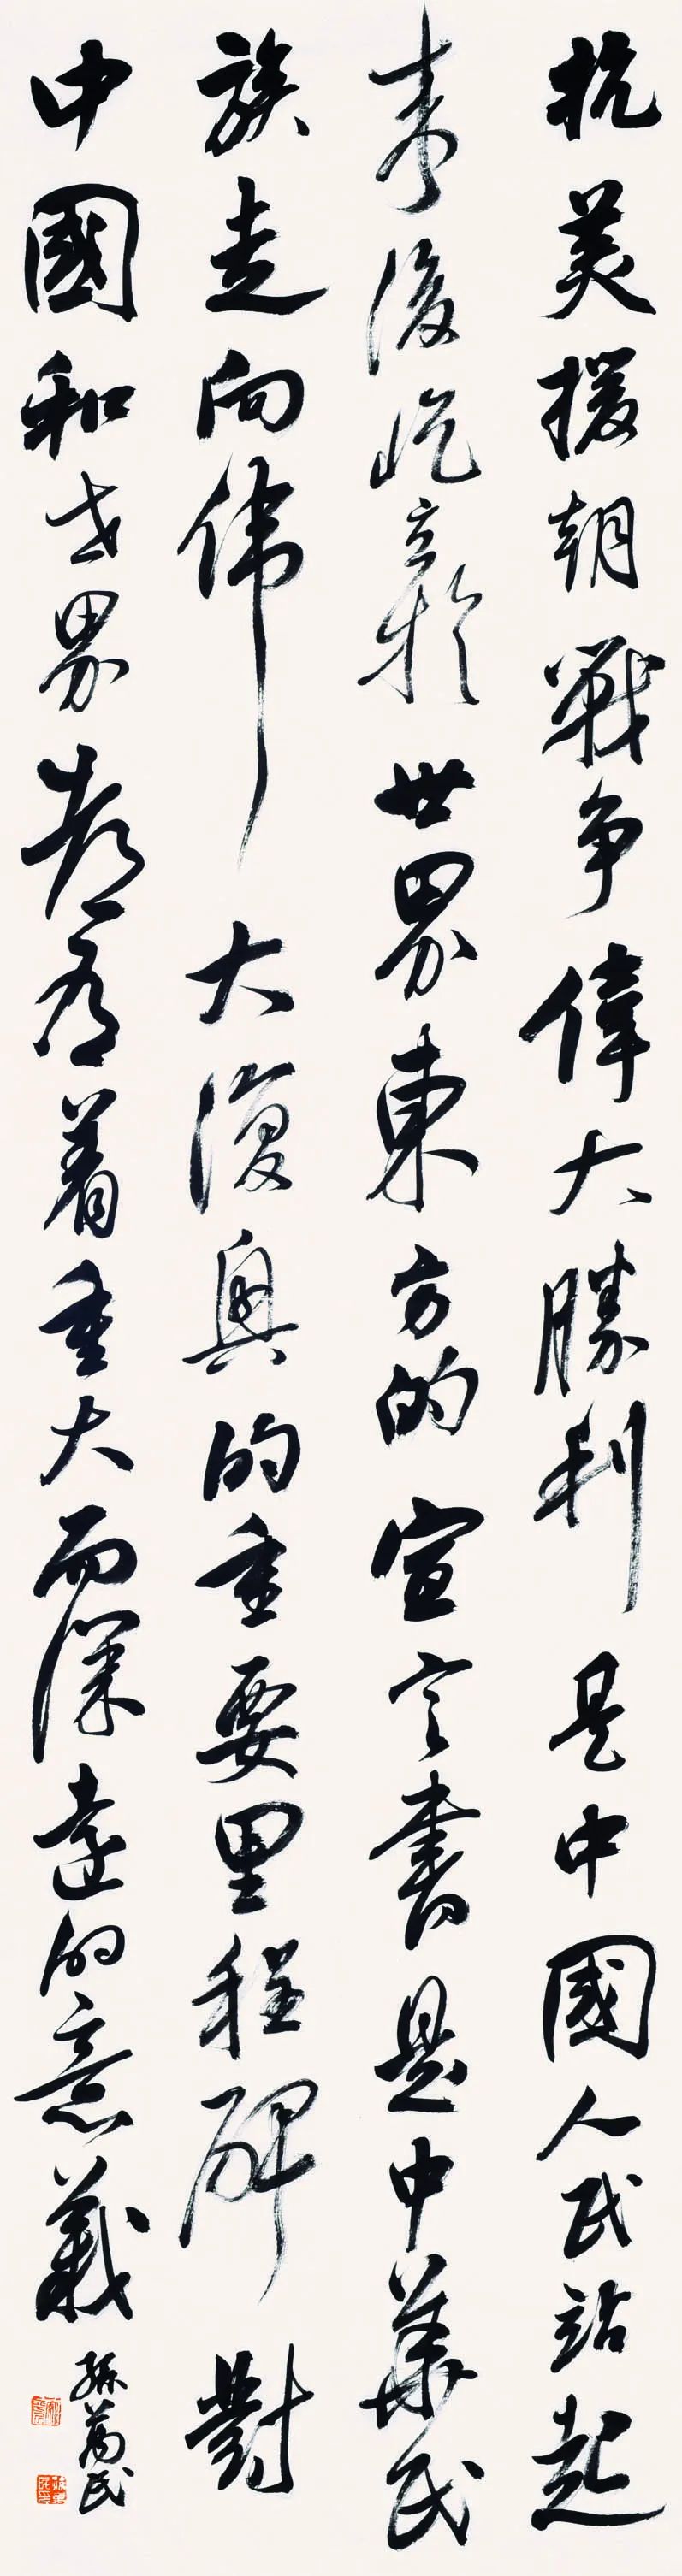 抗美援朝戰争偉大勝利是中國人民站起
来後屹立於世界東方的宣言書是中華民
族走向伟大復興的重要里程碑對
中國和世界都有着重大而深遠的意義
孫萬民